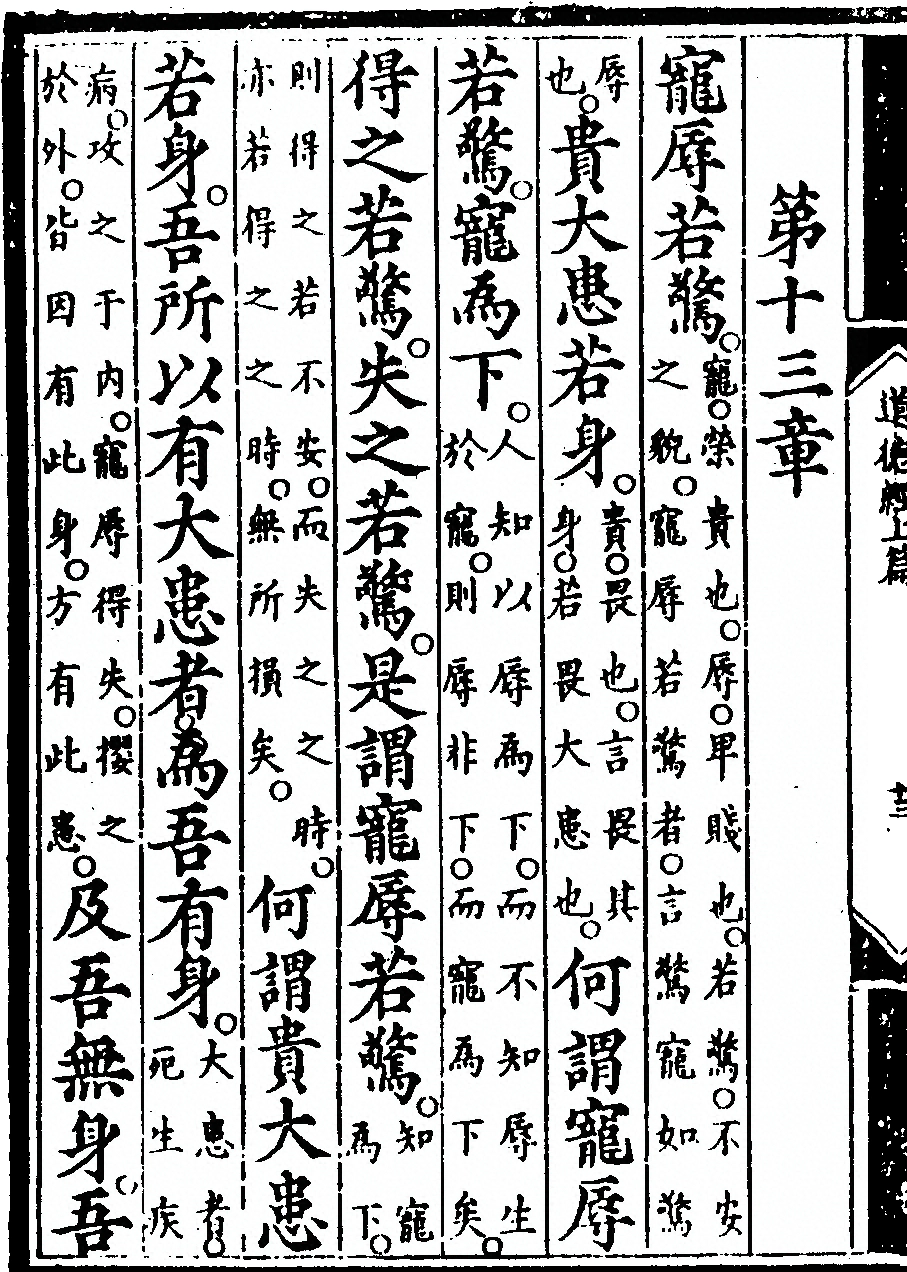 第十三章
寵辱若驚。寵。榮貴也。辱。卑賤也。若驚。不安之貌。寵辱若驚者。言驚寵如驚
辱也。貴大患若身。貴。畏也。言畏其身。若畏大患也。何謂寵辱
若驚。寵為下。人知以辱為下。而不知辱生於寵。則辱非下。而寵為下矣。
得之若驚。失之若驚。是謂寵辱若驚。知寵為下。
則得之若不安。而失之之時。亦若得之之時。無所損矣。何謂貴大患
若身。吾所以有大患者。為吾有身。大患者。死生疾
病。攻之于内。寵辱得失。攖之於外。皆因有此身。方有此患。及吾無身。吾
道德經上篇
十三